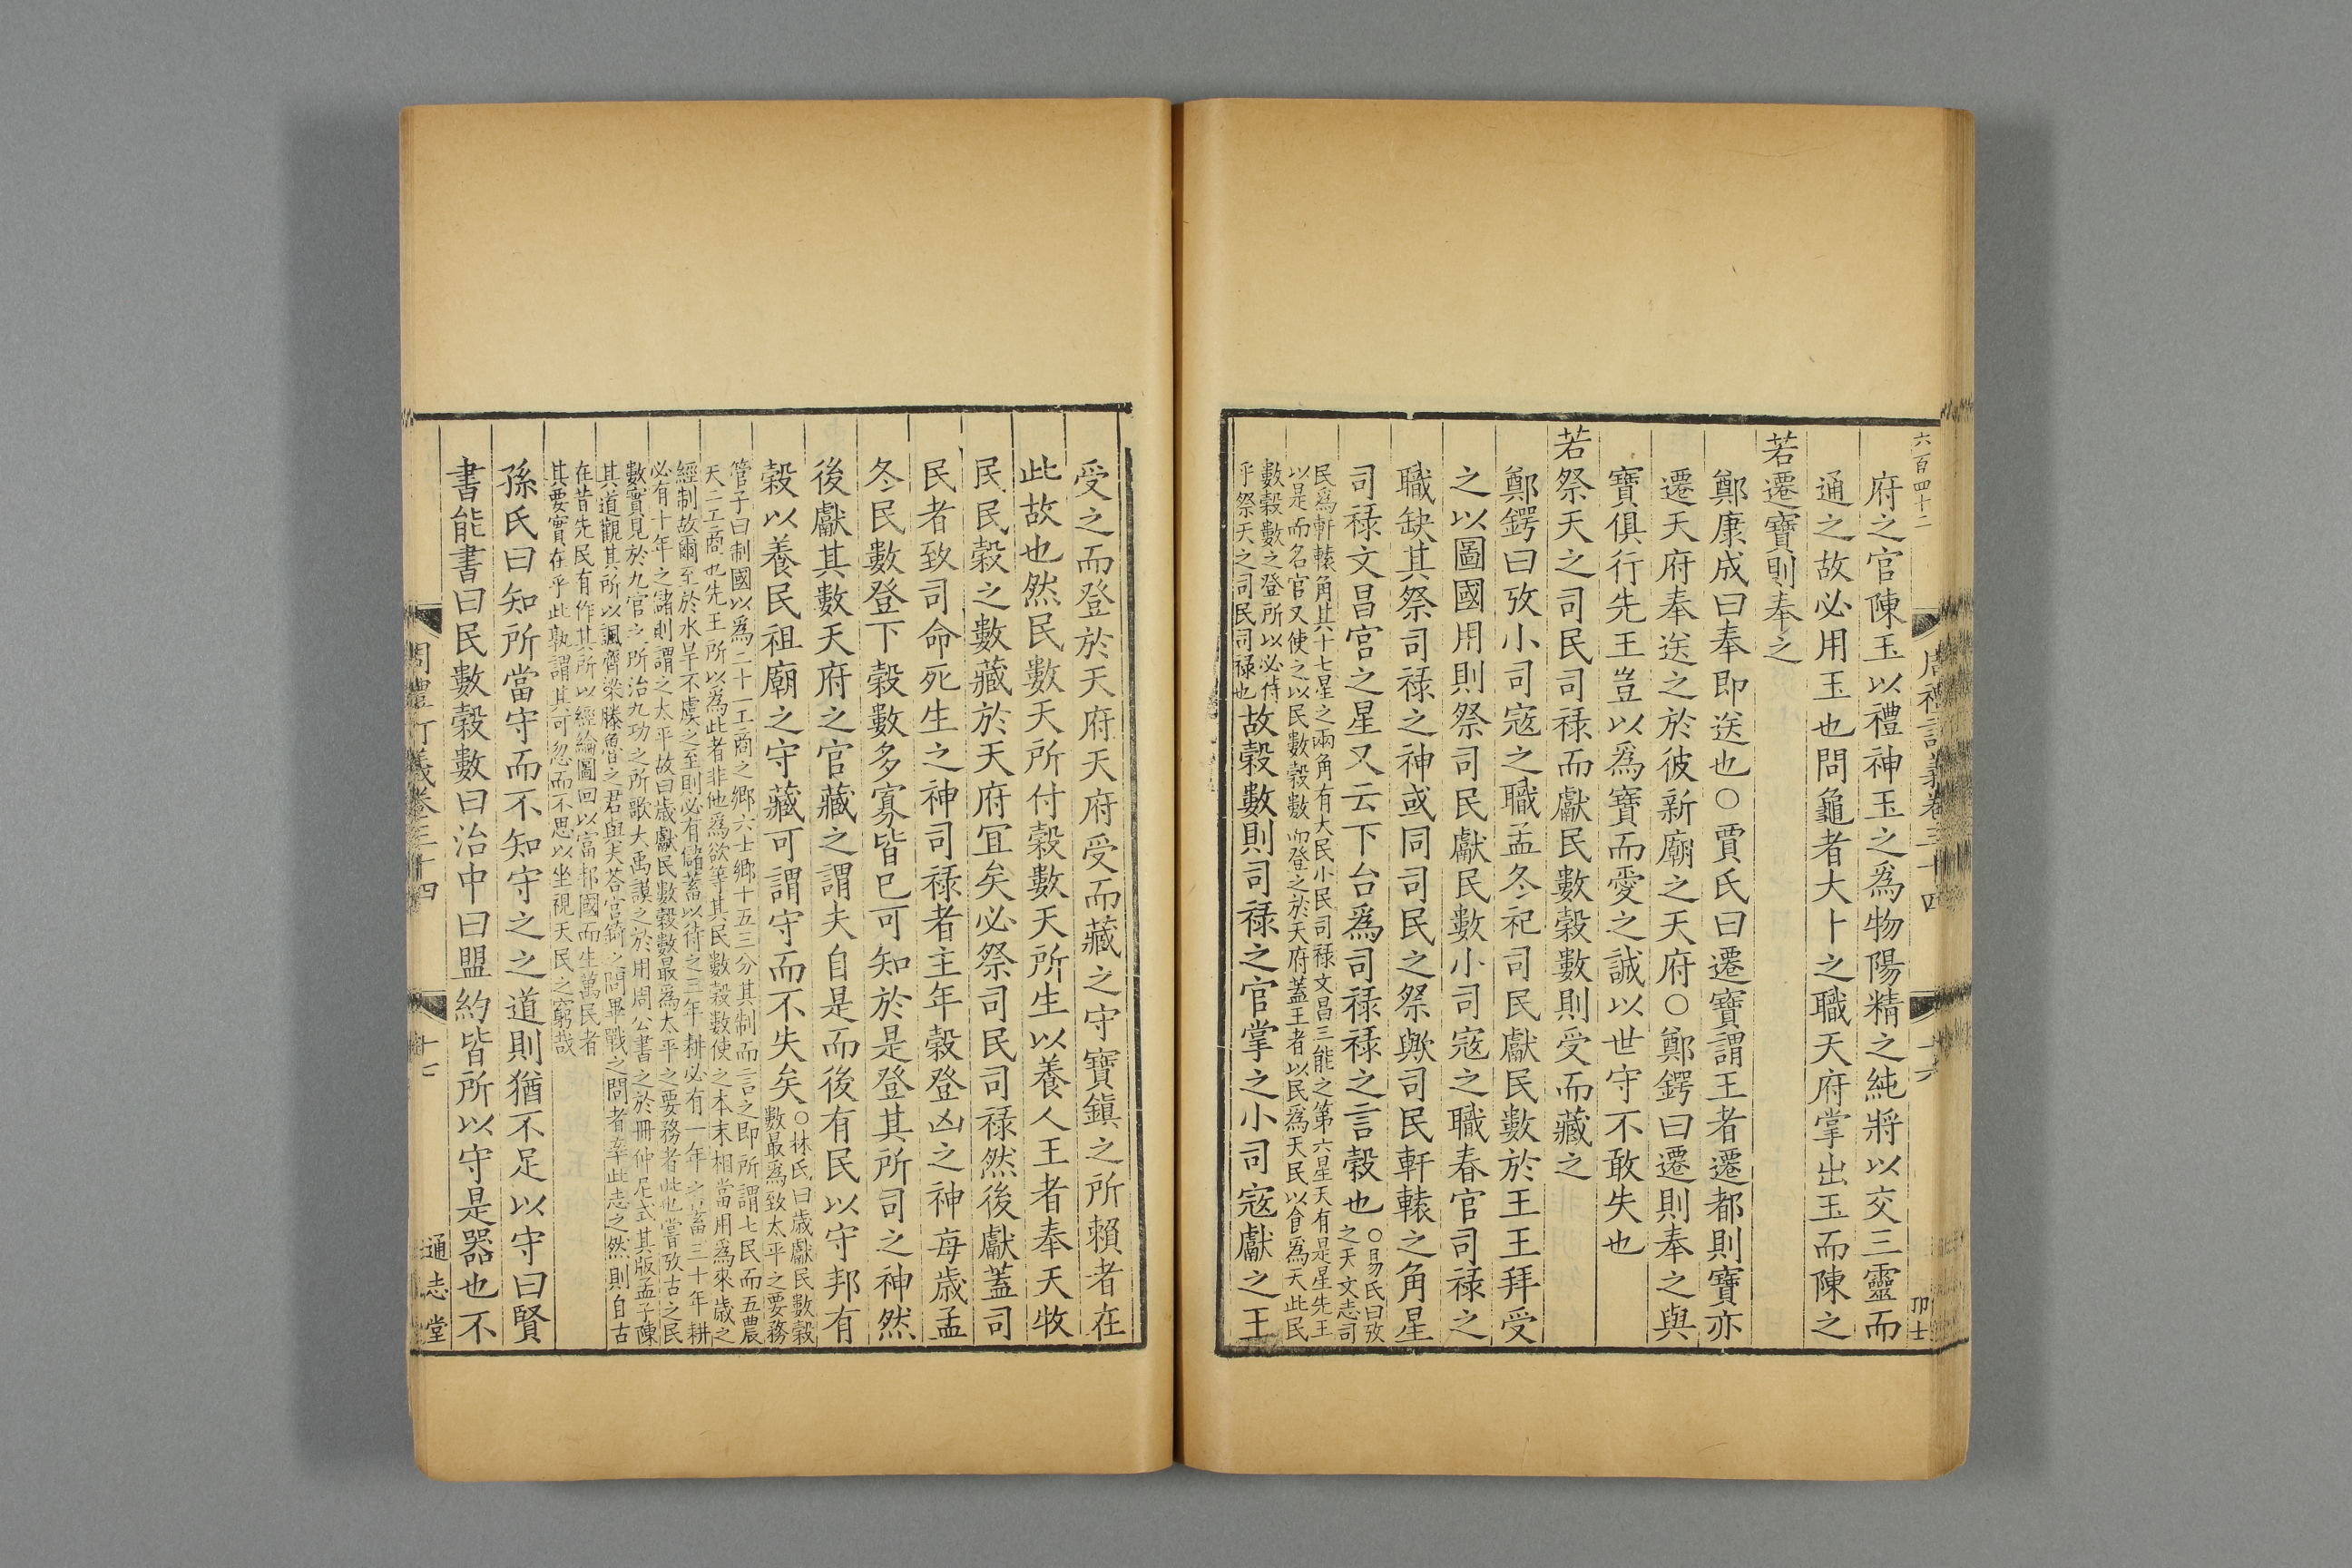 六百四十二
周禮訂義卷三十四
十六
卬士
府之官陳玉以禮神玉之爲物陽精之純將以交三靈而
通之故必用玉也問龜者大卜之職天府掌出玉而陳之
若遷寶則奉之
鄭康成曰奉即送也○賈氏曰遷寶謂王者遷都則寶亦
遷天府奉送之於彼新廟之天府○鄭鍔曰遷則奉之與
寶俱行先王豈以爲寶而愛之誠以世守不敢失也
若祭天之司民司祿而獻民數穀數則受而藏之
鄭鍔曰攷小司寇之職孟冬祀司民獻民數於王王拜受
之以圖國用則祭司民獻民數小司寇之職春官司祿之
職缺其祭司祿之神或同司民之祭歟司民軒轅之角星
司祿文昌宮之星又云下台爲司祿祿之言穀也
○易氏曰攷
之天文志司
民爲軒轅角其十七星之兩角有大民小民司祿文昌三能之第六星天有是星先王
以是而名官又使之以民數穀數而登之於天府蓋王者以民爲天民以食爲天此民
數穀數之登所以必待
乎祭天之司民司祿也
故穀數則司祿之官掌之小司寇獻之王
受之而登於天府天府受而藏之守寶鎮之所賴者在
此故也然民數天所付穀數天所生以養人王者奉天牧
民民穀之數藏於天府冝矣必祭司民司祿然後獻蓋司
民者致司命死生之神司祿者主年穀登凶之神每歲孟
冬民數登下穀數多寡皆已可知於是登其所司之神然
後獻其數天府之官藏之謂夫自是而後有民以守邦有
穀以養民祖廟之守藏可謂守而不失矣
○林氏曰歲獻民數穀
數最爲致太平之要務
管子曰制國以爲二十一工商之鄉六士鄉十五三分其制而言之即所謂七民而五農
天二工商也先王所以爲此者非他爲欲等其民數穀數使之本末相當用爲來歲之
經制故爾至於水旱不虞之至則必有儲蓄以待之三年耕必有一年之蓄三十年耕
必有十年之儲則謂之太平故曰歲獻民數穀數最爲太平之要務者此也嘗攷古之民
數實見於九官之所治九功之所歌大禹謨之於用周公書之於冊仲尼式其版孟子陳
其道觀其所以諷齊梁滕魯之君與夫荅宮錡之問畢戰之問者率此志之然則自古
在昔先民有作其所以經綸圖回以富邦國而生萬民者
其要實在乎此孰謂其可忽而不思以坐視天民之窮哉
孫氏曰知所當守而不知守之之道則猶不足以守曰賢
書能書曰民數穀數曰治中曰盟約皆所以守是器也不
周禮訂義卷三十四
十七
通志堂